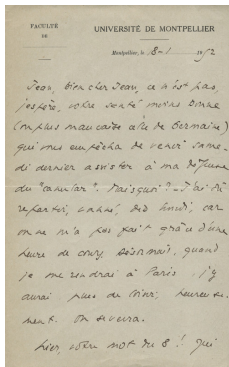 FACULTÉ
DE
UNIVERSITÉ DE MONTPELLIER
Montpellier, le 8-1 1952
Jean, bien cher Jean, ce n'est pas,
j'espère, votre santé moins bonne
(ou plus mauvaise celle de Germaine)
qui vous empêcha de venir same-
di dernier assister à ma défense
du "canular". Mais quoi? J'ai dû
repartir, dès lundi, car
on ne m'a pas fait grâce d'une
heure de cours. Désormais, quand
je me rendrai à Paris, j'y
aurai plus de loisir, heureuse-
ment. On se verra.
Hier, votre mot du 8!! Qui